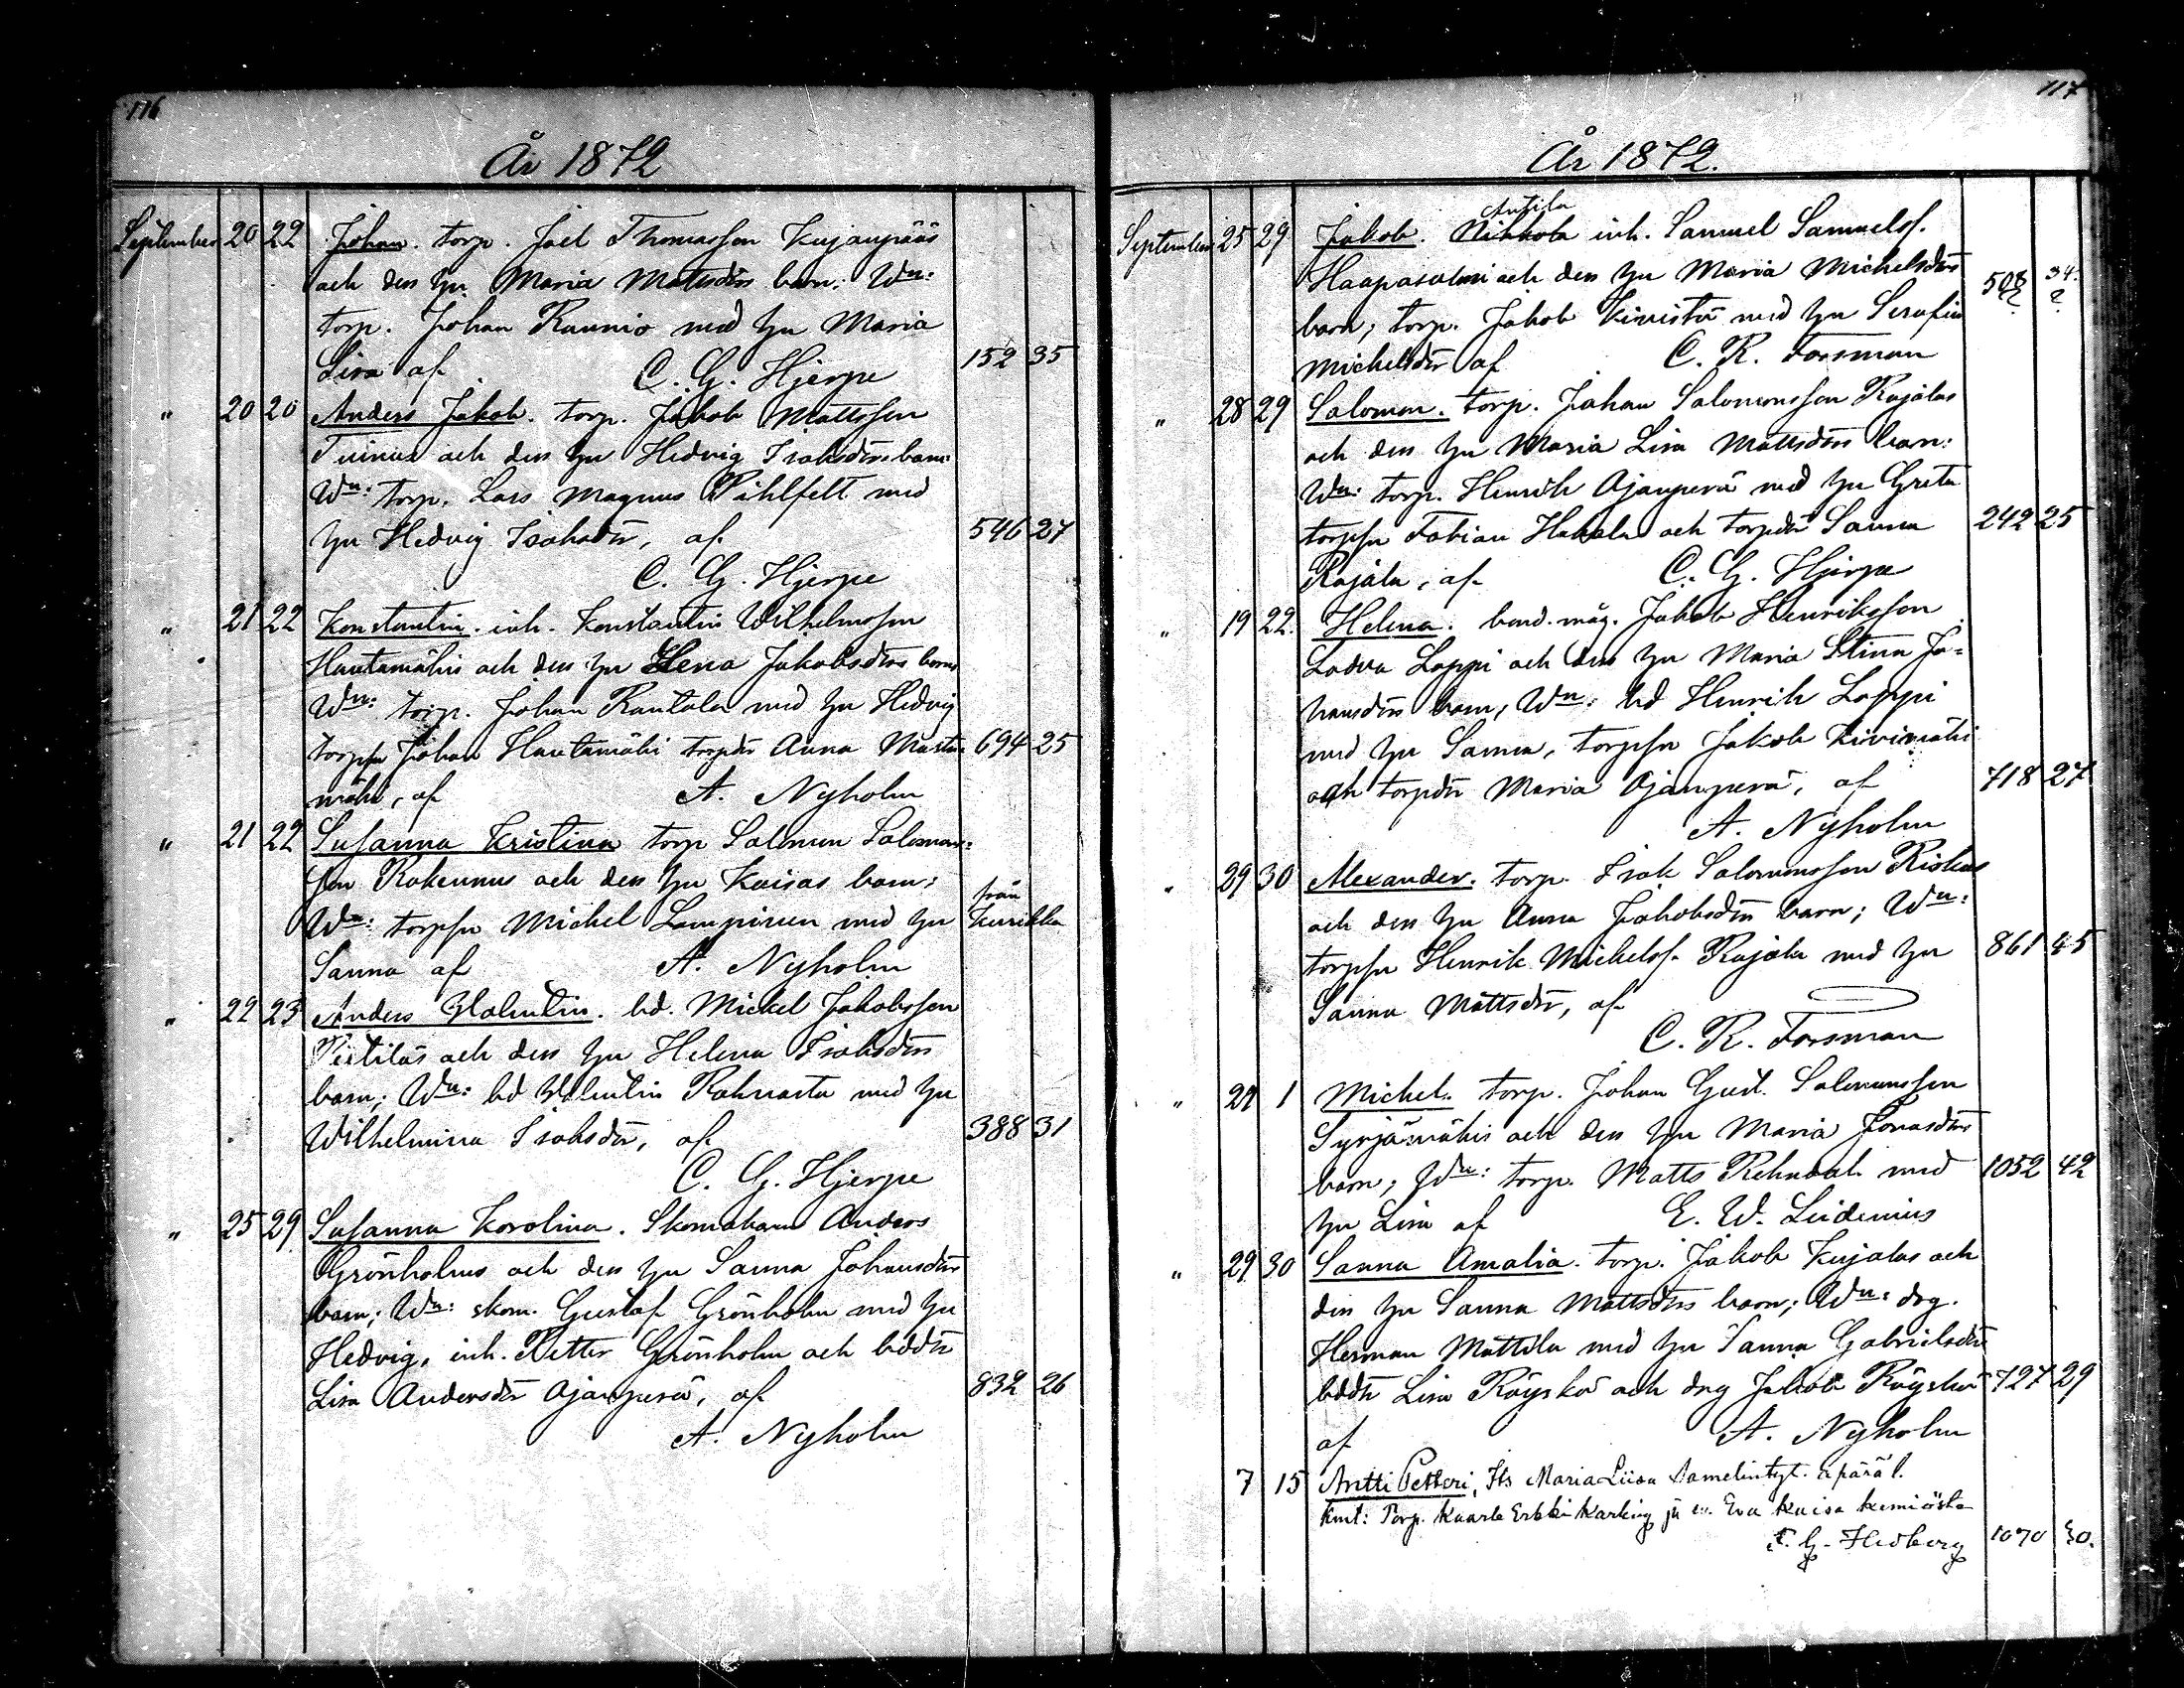 116
År 1872
September 20 22 Johan. torp. Joel Thomasson Kujanpääs
och dess hu Maria Mattsdrs barn; Wn:
torp. Johan Raunio med hu Maria
Lisa af C. G. Hjerpe 152 35
" 20 20 Anders Jakob. torp. Jakob Mattsson
och dess hu Hedvig Isaksdrs barn
Wn: torp. Lars Magnus Pihlfelt med
hu Hedvig Isaksdr, af 546 27
C. G. Hjerpe
" 21 22 Konstantin. inh. Konstantin Wilhelmsson
Hautamäkis och dess hu Lena Jakobsdrs barn
Wn: torp. Johan Rautala med hu Hedvig
torpsn Johan Hautamäki torpdr Anna Musta- 694 25
mäki, af A. Nyholm
" 21 22 Susanna Kristina torp Salomon Salomons-
son Rakennus och dess hu Kaisas barn;
Wn: torpsn Michel Lampinen med hu från Kurikka
Sanna af A. Nyholm
" 22 23 Anders Valentin. bd. Mickel Jakobsson
Pietiläs och dess hu Helena Isaksdrs
barn; Wn: bd Valentin Rahnasto med hu
Wilhelmina Isaksdr, af 388 31
C. G. Hjerpe
" 25 29 Susanna Karolina. Skomakare Anders
Grönholms och dess hu Sanna Johansdrs
barn; Wn: skom. Gustaf Grönholm med hu
Hedvig, inh. Petter Grönholm och bddr
Lisa Andersdr Ojanperä, af 832 26
A. Nyholm
117
År 1872.
Anttila
September 25 29 Jakob. Nikkola inh. Samuel Samuelss.
Haapasalmi och dess hu Maria Michelsdrs 508? 34?
barn; torp. Jakob Kivistö med hu Serafia
Michelsdr af C. R. Forsman
" 28 29 Salomon. torp. Johan Salomonsson Rajalas
och dess hu Maria Lisa Mattsdrs barn:
Wn: torp. Henrik Ojanperä med hu Greta
torpsn Fabian Hakala och torpdr Sanna 242 25
Rajala, af C. G. Hjerpe
" 19 22. Helena. bond. måg. Jakob Henriksson
Ladva Loppi och dess hu Maria Stina Jo-
hansdrs barn; Wn: bd Henrik Loppi
med hu Sanna, torpsn Jakob Kivimäki
och torpdr Maria Ojanperä, af 718 27
A. Nyholm
" 29 30 Alexander. torp. Isak Salomonsson Riskus
och dess hu Anna Jakobsdrs barn; Wn:
torpsn Henrik Michelss. Rajala med hu 861 45
Sanna Mattsdr, af
C. R. Forsman
" 29 1 Michel. torp. Johan Gust. Salomonsson
Syrjämäkis och dess hu Maria Jonasdrs
barn; Wn: torp. Matts med 1052 42
hu Lisa af E. W. Leidenius
" 29 30 Sanna Amalia. torp. Jakob Kujalas och
dess hu Sanna Mattsdrs barn; Wn: drg.
Herman Mattila med hu Sanna Gabrielsdr
bddr Lisa Röyskö och drg Jakob Röyskö 727 29
af A. Nyholm
7 15 Antti Petteri, Its Maria Liisa Samelintyt. äpärä l.
Kmt: Torp. Kaarle Erkki Karling ja v. Eva Kaisa
G. Hedberg 1070 30.